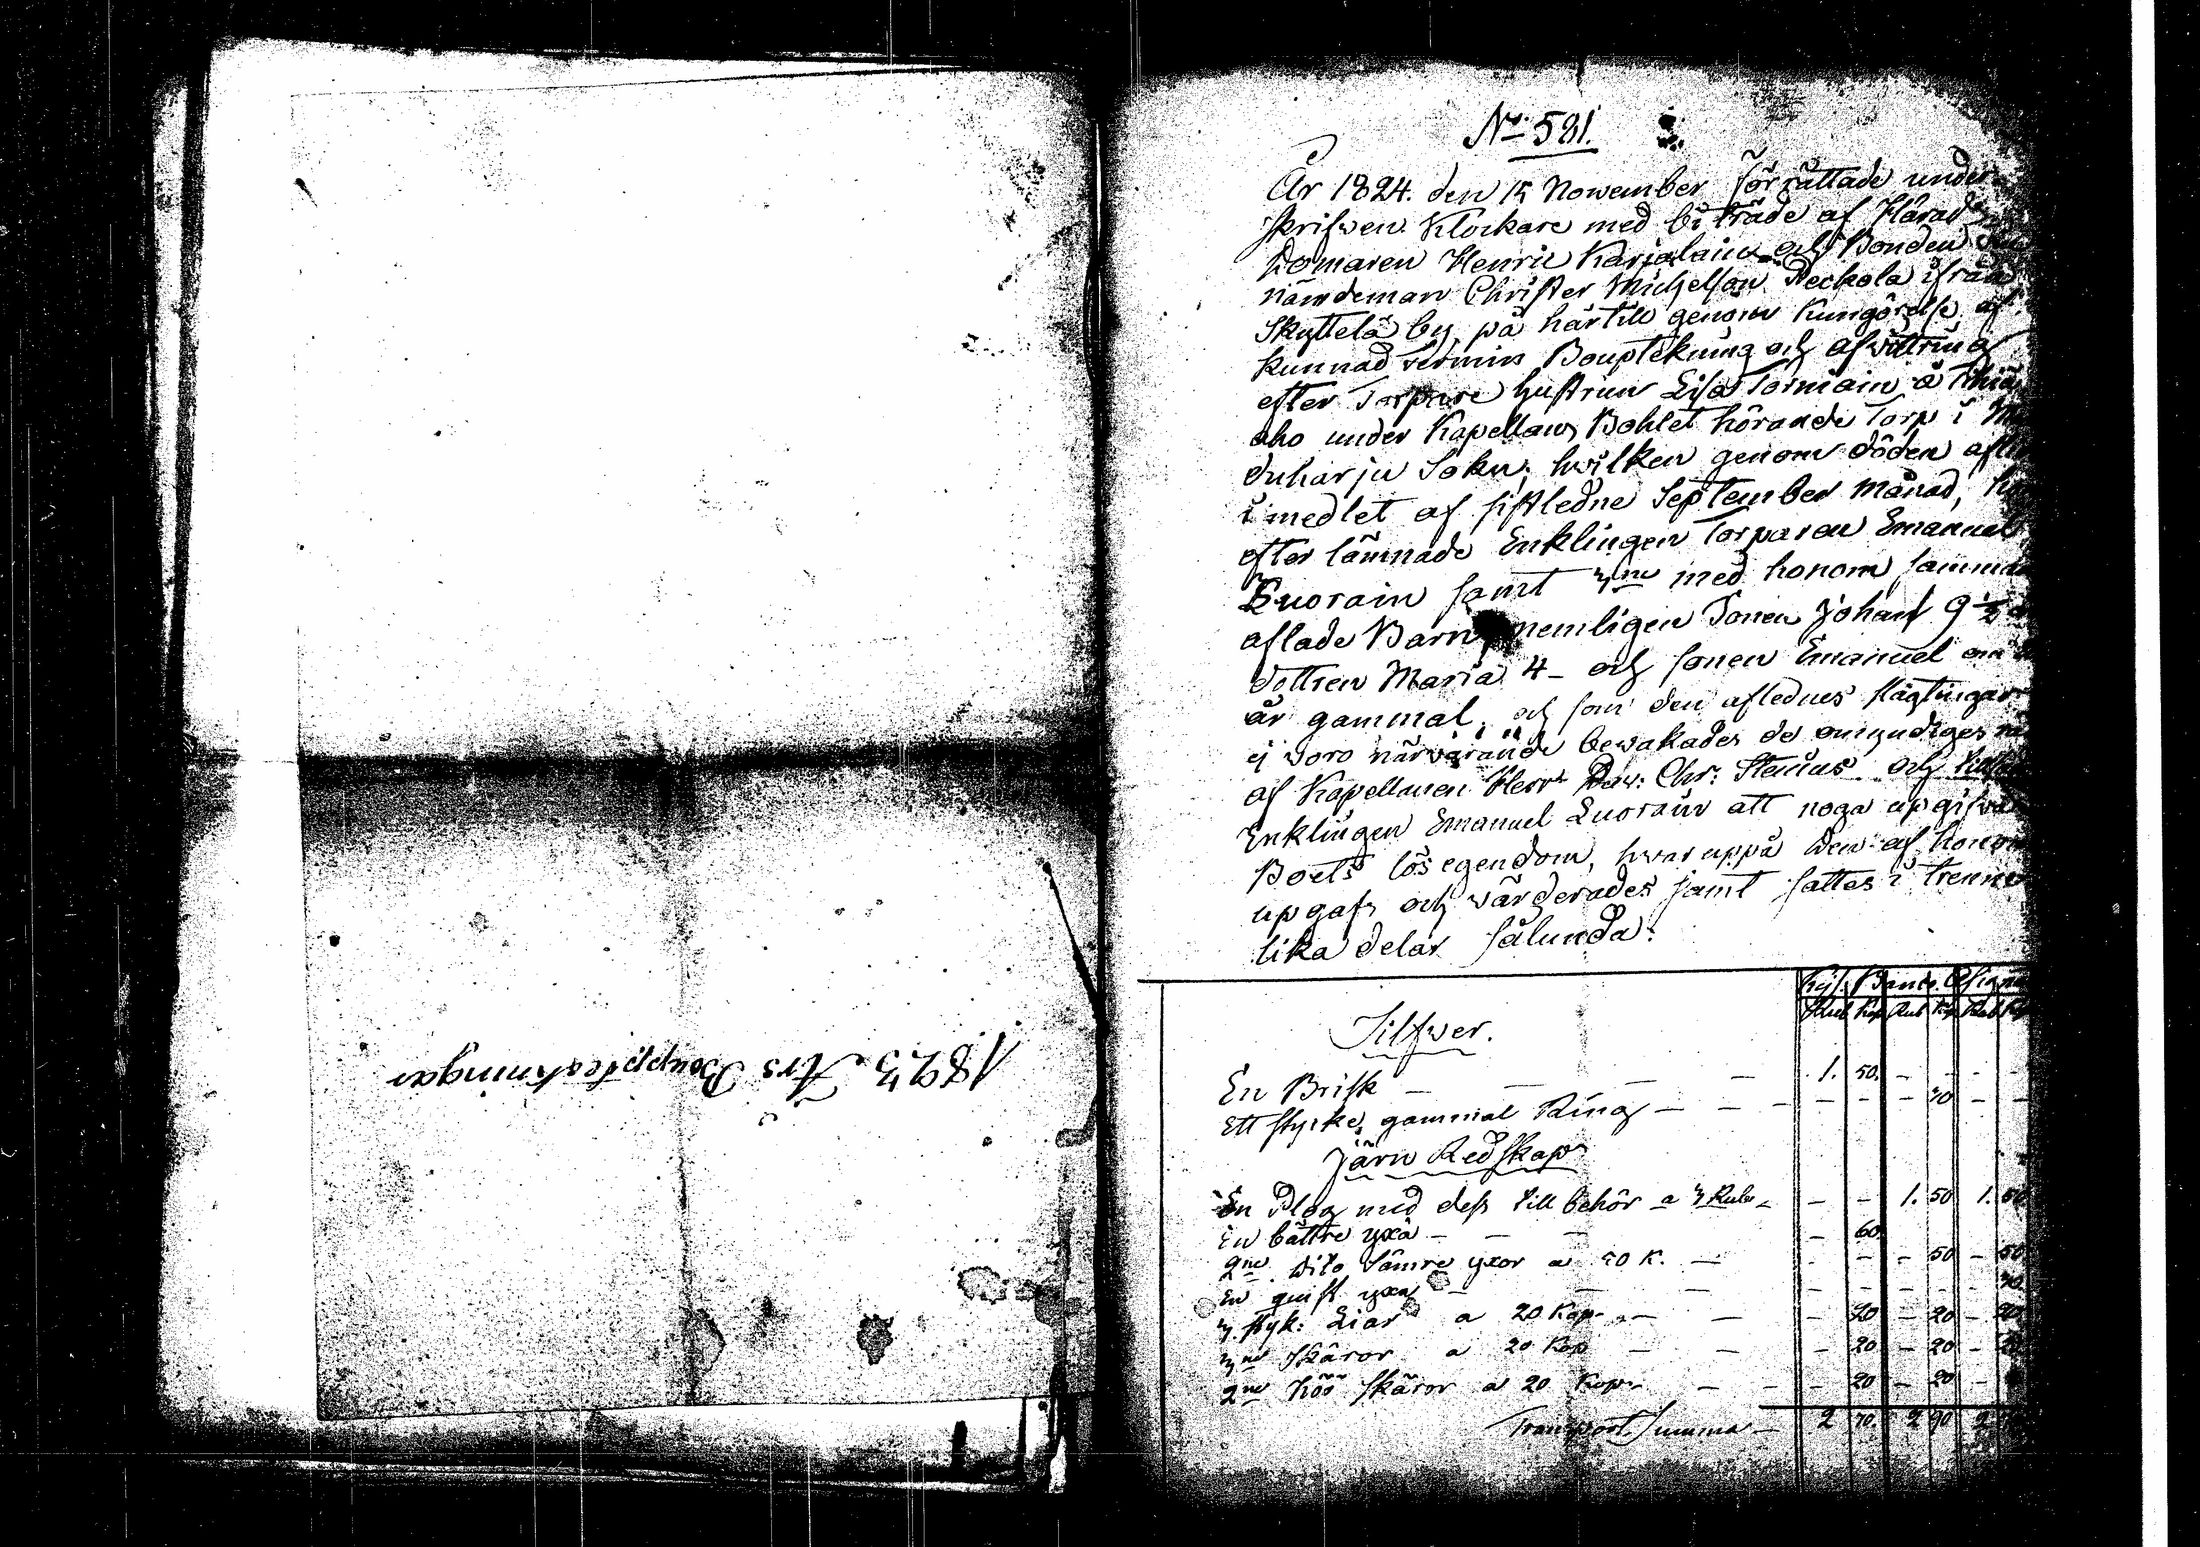 1823 Års Bouppteckningar
No 581.
År 1824. den 15 November förrättade under-
skrifwen Klockare med biträde af Härads
Domaren Henric Karjalain och Bonden
nämdeman Christer Michelson Peckola ifrån
Skyttelä by, på härtill genom Kungörelse af
kunnad termin Bouptekning och afwittring
efter Torpare hustrun Lisa Torniain å
aho under Kapellans Bohlet hörande Torp i
duharju Sokn, hwilken genom döden
i medlet af sistledne September månad,
efter lämnade Enklingen Torparen Emanuel
Luorain samt 3ne med honom samman
aflade Barn nemligen Sonen Johan 9 1/2
dottren Maria 4 - och sonen Emanuel
år gammal, och som den aflednes slägtingar
ej woro närwarande bewakades de omyndiges
af Kapellanen Herr Dav: Chr: Stenius och
Enklingen Emanuel Luorain att noga upgifwa
Boets lösegendom, hwaruppå den af honom
upgafs och wärderades samt sattes i trenne
lika delar sålunda:
Banco
Rub Kop Rub Kop Rub
Silfwer.
En Brisk - - - - 1. 50. - - - -
Ett stycke gammal Ring - - - - - - 70 - -
Järn Redskap
En Plog med dess tillbehör a 3 Rub - - - 1. 50 1. 50
En bättre yxa - - - - 60.
2ne dito sämre yxor a 50 K. - - - - 50 - 50
En quist yxa - - - - - -
3. styk: Liar a 20 Kop - - - 20 - 20 - 20
3ne Skäror a 20 Kop - - - 20 - 20 -
2ne höö skäror a 20 Kop - - - 20 - 20 -
Transport Summa - 2 70. 2 90 2